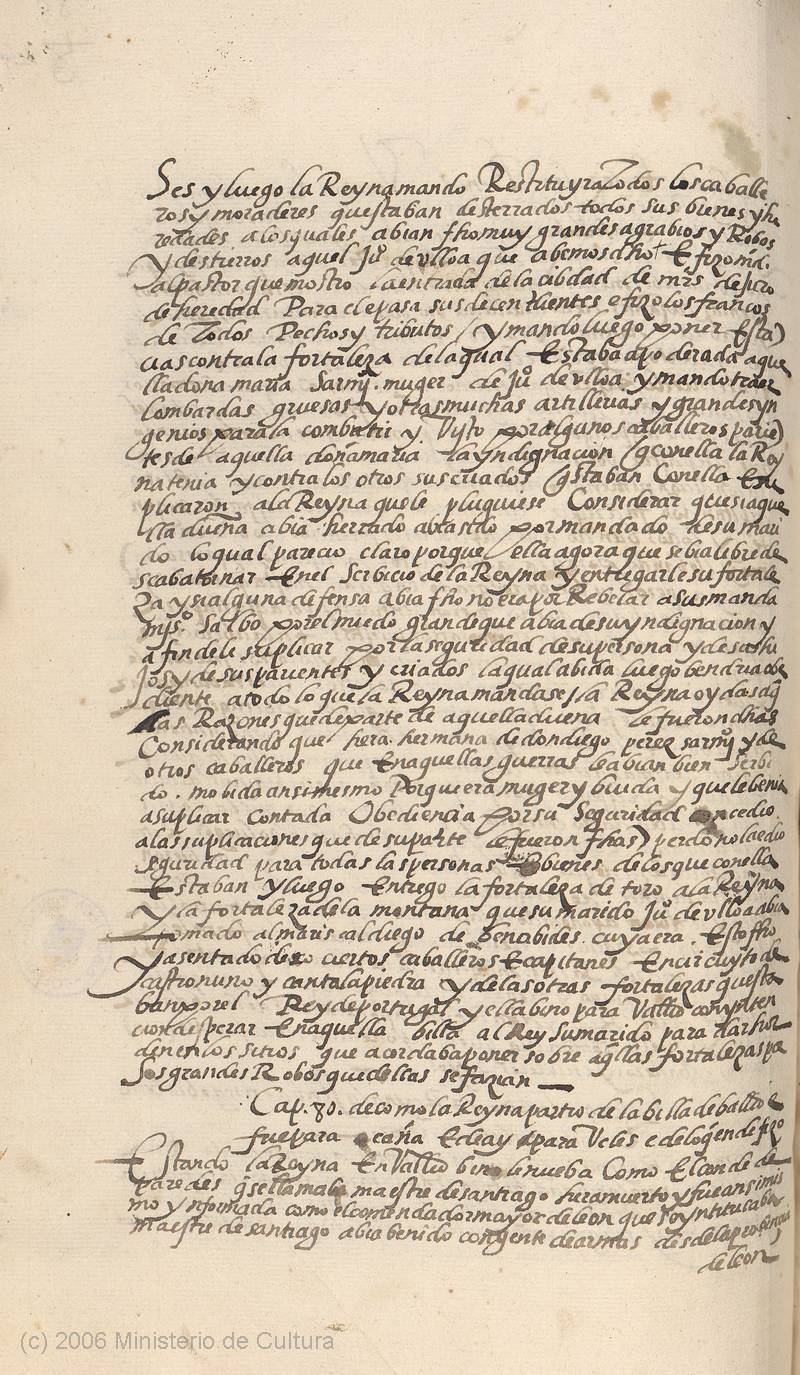 Ses y luego la Reyna mando Restituyr a todos los caballe
ros y moradores que estaban desterrados todos sus bienes y he
redades a los quales abian fho muy grandes agrabios y Robos
y destierros aquel Ju.º de ulloa que abemos dho E fizo md.
al pastor que mostro la entrada de la cibdad de mrs de juro
de heredad Para el e pa sus decendientes e fizo los francos
de todos Pechos y tributos / y mando luego poner Esta
cias contra la fortaleza de la qual Estaba apoderada aque
lla dona maria Sarmj. muger de Ju.º de ulloa y mando traer
lombardas gruesas y otras muchas artillerias y grandes yn
genios para la combatir y Visto por algunos caballeros parie
tes de aquella doña maria la yndignacion q con ella la Rey
na tenia y contra los otros sus criados q Estaban Con ella Esu
plicaron a la Reyna que le pluguiese Considerar que si aque
lla dueña abia herrado abia sido por mandado de su mari
do lo qual parecio claro porque ella agora que se bia libre de
seaba tornar En el Serbicio de la Reyna y entregarle su fortale
za y si alguna defensa abia fho no era por Rebelar a sus manda
mjs.º salbo por el miedo grande que abia de su yndignacion y
a fin de le suplicar por la seguridad de su persona y de sus hi
jos y de sus parientes y criados la qual abida luego bendria obe
diente a todo lo que la Reyna mandase / la Reyna oydas aq
llas Razones que de parte de aquella duena le fueron dhas
Considerando que hera hermana de don diego perez sarmj y de
otros caballeros que En aquellas guerras le abian bien serbi
do. mobida ansimesmo Porque era muger y biuda y que le benia
a suplicar con toda Obediencia por su Seguridad concedio
a las suplicaciones que de su parte le fueron fhas) perdonola e dio
seguridad para todas las personas E bienes de los que con ella
Estaban y luego Entrego la fortaleza de toro a la Reyna
y la fortaleza de la mota que su marido Ju.º de ulloa abia
tomado al mariscal diego de benabides. cuya era. Esto fho
y asentado dexo ciertos caballeros E capitanes En circuyto de
castronuno y cantalapiedra y de las otras fortalezas questa
ban por el Rey de portugal y ella bino para Vallid con ynten
cion desperar En aquella billa al Rey su marido para dar hor
den en los sitios que acordaba poner sobre aqllas fortalezas po
los grandes Robos que dellas se fazian
Cap. 80. de como la Reyna partio de la billa de ballid E
fue para ocaña E de ay para Ucles e de lo q en de fizo
Estando la Reyna En Vallid beno le nueba Como El conde de
paredes q se llamaba maestre de santiago hera muerto y fue ansimis
mo ynformada como el comendador mayor de leon que se yntitulaba
maestre de santiago abia benido con gente de armas desde la probincia
de leon